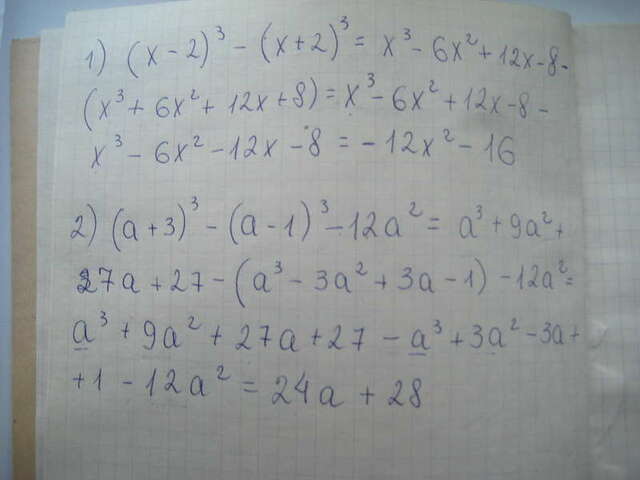 1) (x-2)³ - (x+2)³ = x³ - 6x² + 12x - 8 -
(x³ + 6x² + 12x + 8) = x³ - 6x² + 12x - 8 -
x³ - 6x² - 12x - 8 = - 12x² - 16
2) (a+3)³ - (a-1)³ - 12a² = a³ + 9a² +
27a + 27 - (a³ - 3a² + 3a - 1) - 12a² =
a³ + 9a² + 27a + 27 - a³ + 3a² - 3a +
+ 1 - 12a² = 24a + 28